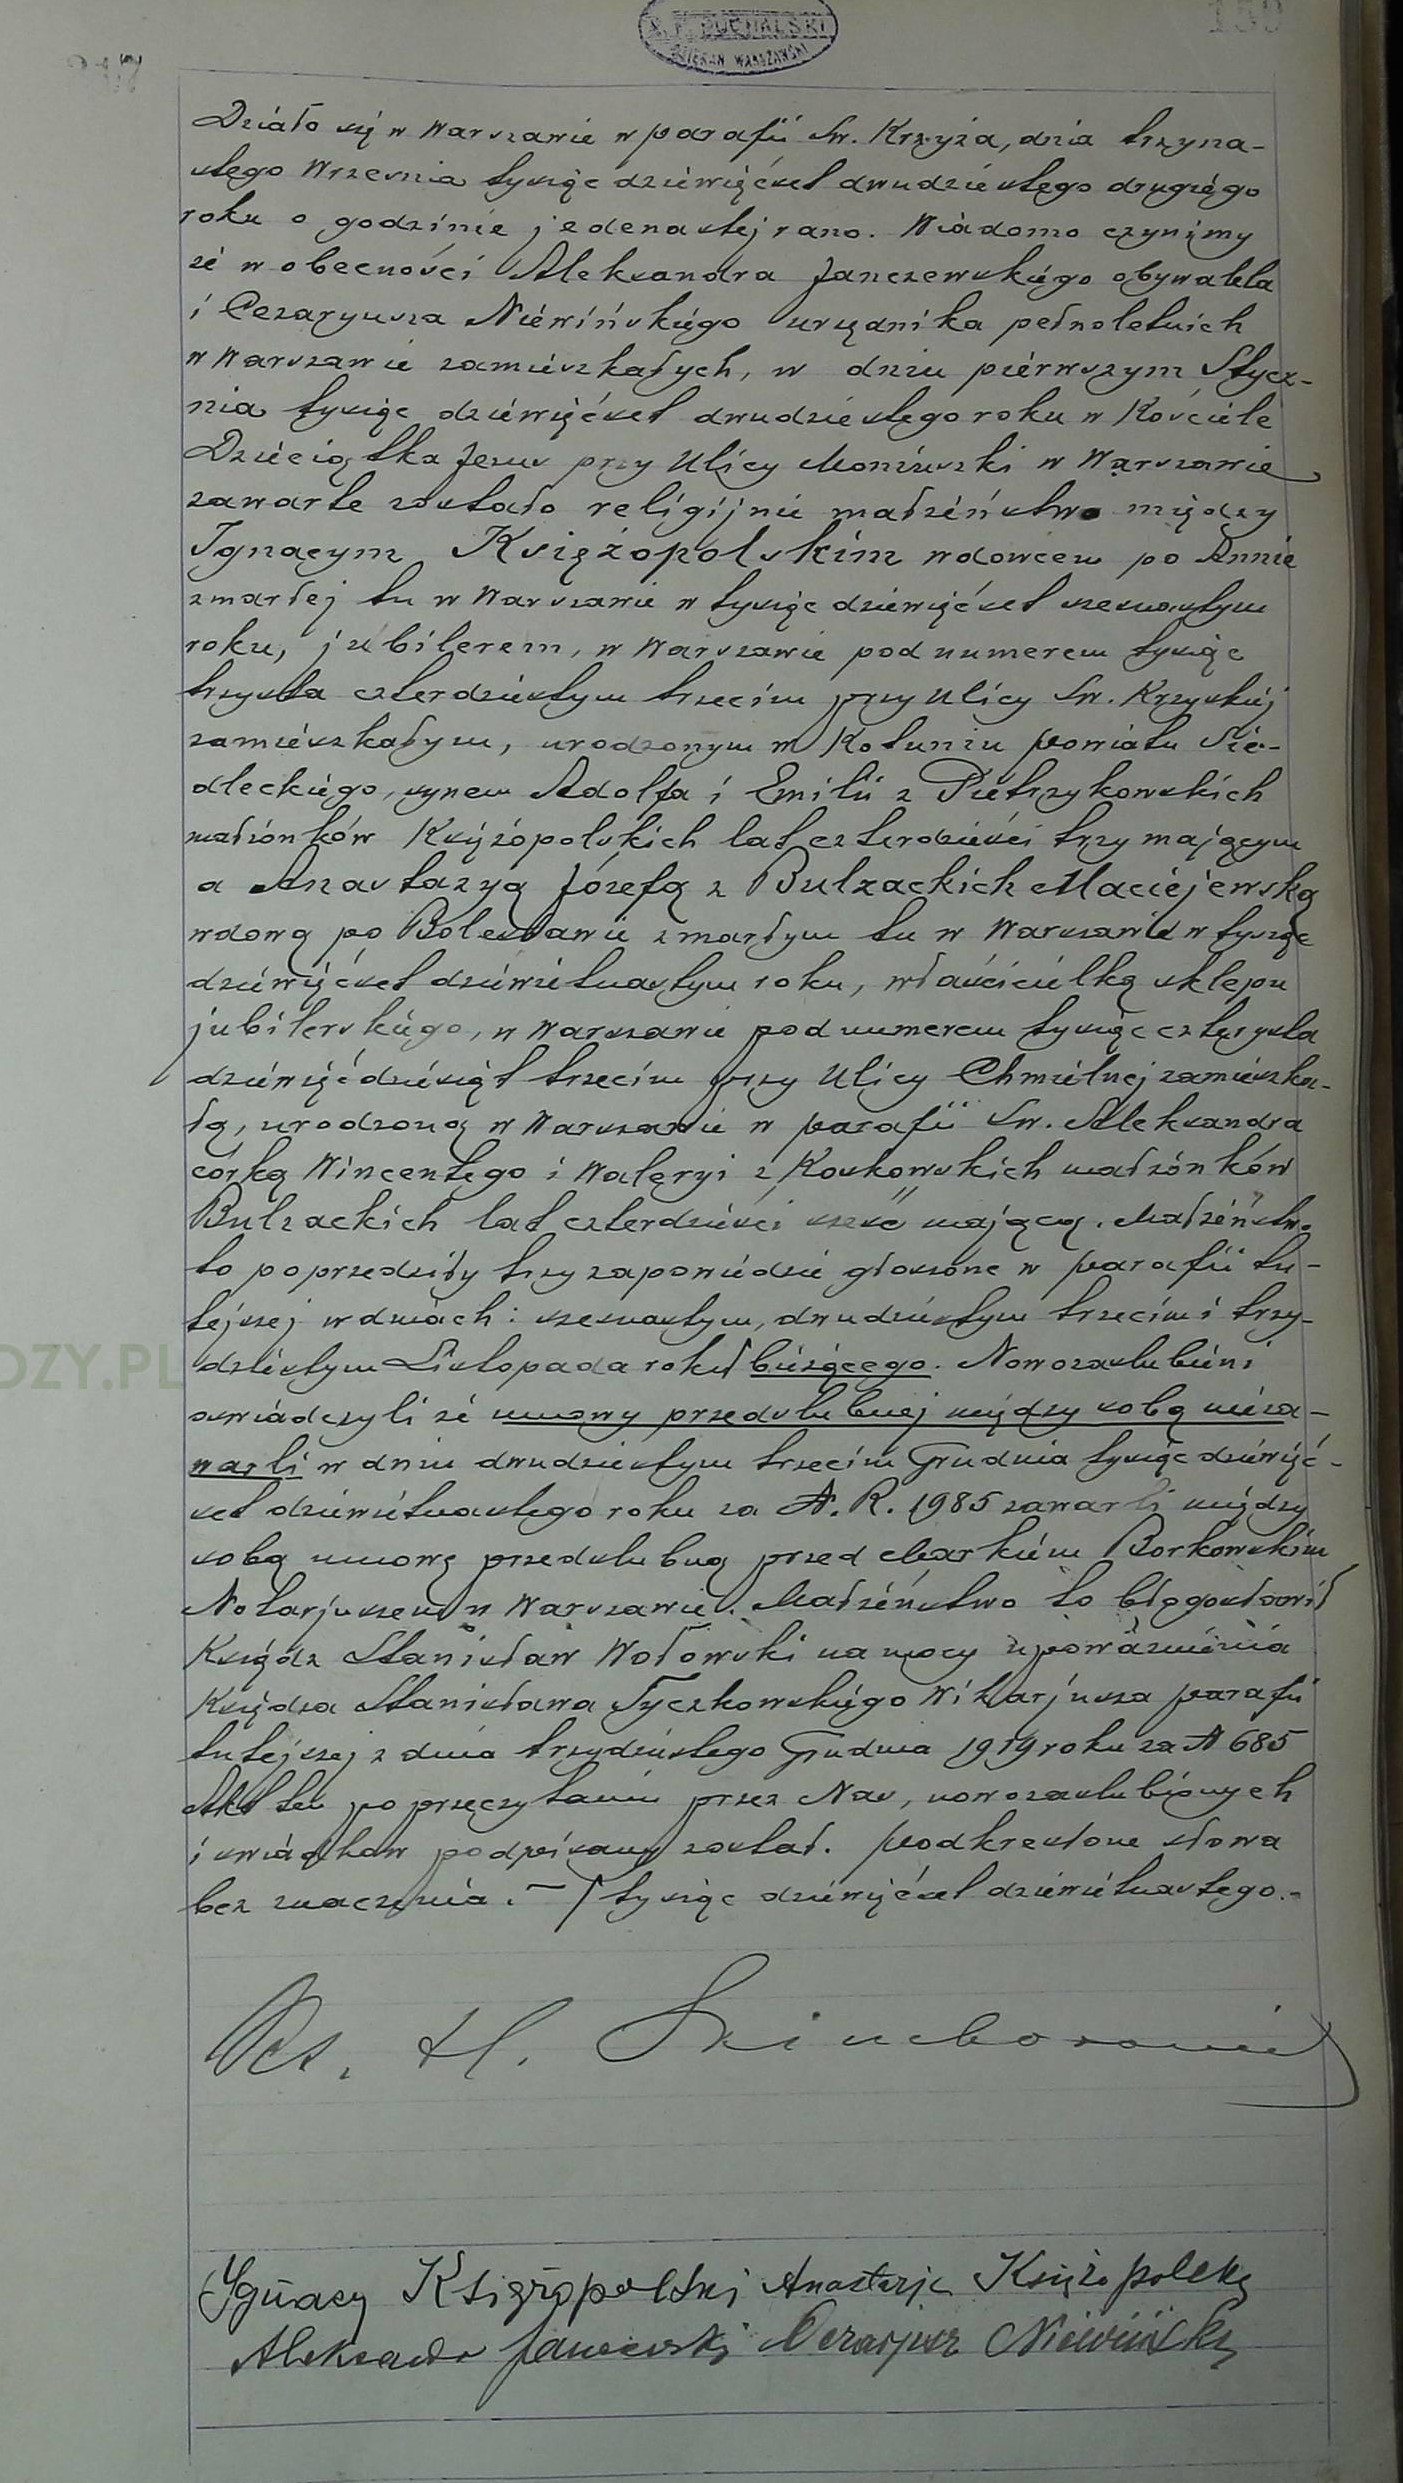 150
X. F. PUCHALSKI
DZIEKAN WARSZAWSKI
Działo się w Warszawie w parafii Św. Krzyża, dnia trzyna-
stego Września tysiąc dziewięćset dwudziestego drugiego
roku o godzinie jedenastej rano. Wiadomo czynimy
że w obecności Aleksandra Janczewskiego obywatela
i Cezaryusza Niewińskiego urzędnika pełnoletnich
w Warszawie zamieszkałych, w dniu pierwszym Stycz-
nia tysiąc dziewięćset dwudziestego roku w Kościele
Dzieciątka Jezus przy Ulicy Moniuszki w Warszawie
zawarte zostało religijnie małżeństwo między
Ignacym Księżopolskim wdowcem po Annie
zmarłej tu w Warszawie w tysiąc dziewięćset szesnastym
roku, jubilerem, w Warszawie pod numerem tysiąc
trzysta czterdziestym trzecim przy Ulicy Św. Krzyskiej
zamieszkałym, urodzonym w Kotuniu powiatu Sie-
dleckiego, synem Adolfa i Emilii z Pietrzykowskich
małżonków Księżopolskich lat czterdzieści trzy mającym
a Anastazyą Józefą z Bulzackich Maciejewską
wdową po Bolesławie zmarłym tu w Warszawie w tysiąc
dziewięćset dziewiętnastym roku, właścicielką sklepu
jubilerskiego, w Warszawie pod numerem tysiąc czterysta
dziewięćdziesiąt trzecim przy Ulicy Chmielnej zamieszka-
łą, urodzoną w Warszawie w parafii Św. Aleksandra
córką Wincentego i Waleryi z Koskowskich małżonków
Bulzackich lat czterdzieści sześć mającą. Małżeństwo
to poprzedziły trzy zapowiedzie głoszone w parafii tu-
tejszej w dniach: szesnastym, dwudziestym trzecim i trzy-
dziestym Listopada roku bieżącego. Nowozaślubieni
oświadczyli że umowy przedślubnej między sobą nieza-
warli w dniu dwudziestym trzecim Grudnia tysiąc dziewięć-
set dziewiętnastego roku za N. R. 1985 zawarli między
sobą umowę przedślubną przed Markiem Borkowskim
Notarjuszem w Warszawie. Małżeństwo to błogosławił
Ksiądz Stanisław Wołowski na mocy upoważnienia
Księdza Stanisława Tyczkowskiego Wikarjusza parafii
tutejszej z dnia trzydziestego Grudnia 1919 roku za N 685
Akt ten po przeczytaniu przez Nas, nowozaślubionych
i świadków podpisany został. Podkreślone słowa
bez znaczenia. – / tysiąc dziewięćset dziewiętnastego.-
Ks. H.
Ignacy Księżopolski Anastazja Księżopolska
Aleksander Janczewski Cezarjusz Niewiński
DZY.PL